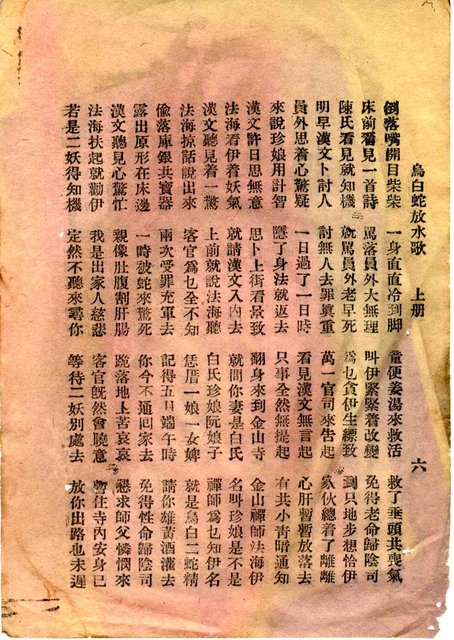 烏白蛇放水歌 上册 六
倒落嘴開目柴柴 一身直直冷到脚 童便姜湯來救活 救了垂頭共喪氣
床前看見一首詩 罵落員外大無理 叫伊緊緊着改變 免得老命歸陰司
陳氏看見就知機 就罵員外老早死 為乜貪伊生縹致 到只地步想恰伊
明早漢文卜討人 討無人去罪眞重 萬一官司來告起 家伙總着了離離
員外思着心驚疑 一日過了一日時 看見漢文無言起 心肝暫暫放落去
來說珍娘用計智 隱了身法就返去 只事全然無提起 有共小青暗通知
漢文許日思無意 思卜上街看景致 翻身來到金山寺 金山禪師法海伊
法海看伊着妖氣 就請漢文入內去 就問你妻是白氏 名叫珍娘是不是
漢文聽見着一驚 上前就說法海聽 白氏珍娘阮娘子 禪師為乜知伊名
法海掠話說出來 客官為乜全不知 恁厝一娘一女婢 就是烏白二蛇精
偷落庫銀共寶器 兩次受罪充軍去 記得五月端午時 請你雄黃酒灌去
露出原形在床邊 一時被蛇來驚死 你今不通回家去 免得性命歸陰司
漢文聽見心驚忙 親像肚腹割肝腸 跪落地上苦哀哀 懇求師父憐憫來
法海扶起就勸伊 我是出家人慈悲 客官旣然會曉意 暫住寺內安身己
若是二妖得知機 定然不聽來尋你 等待二妖別處去 放你出路也未遲